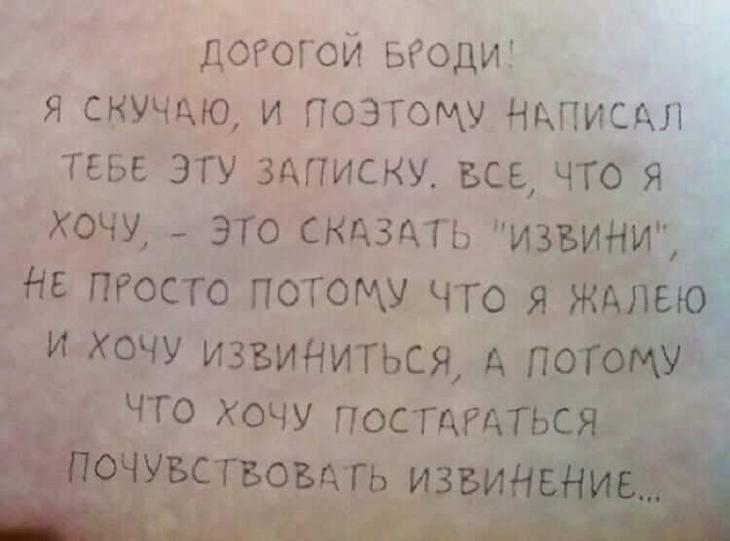 ДОРОГОЙ БРОДИ!
Я СКУЧАЮ, И ПОЭТОМУ НАПИСАЛ
ТЕБЕ ЭТУ ЗАПИСКУ. ВСЕ, ЧТО Я
ХОЧУ, - ЭТО СКАЗАТЬ "ИЗВИНИ",
НЕ ПРОСТО ПОТОМУ ЧТО Я ЖАЛЕЮ
И ХОЧУ ИЗВИНИТЬСЯ, А ПОТОМУ
ЧТО ХОЧУ ПОСТАРАТЬСЯ
ПОЧУВСТВОВАТЬ ИЗВИНЕНИЕ...